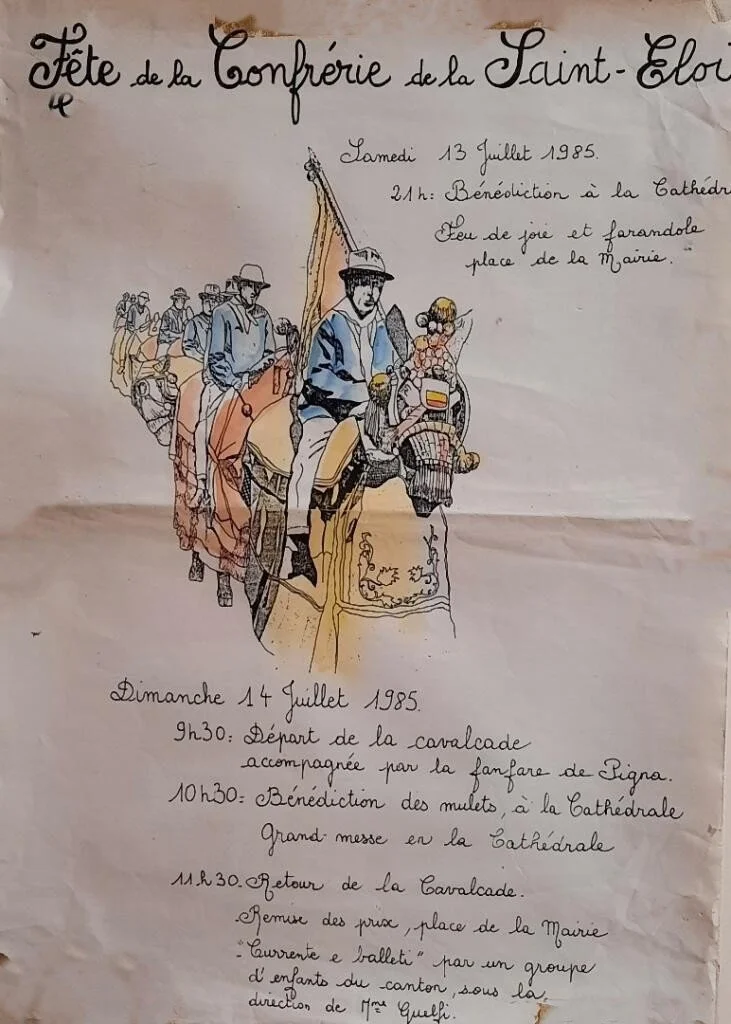 Fête de la Confrérie de la Saint-Eloi
Samedi 13 Juillet 1985.
21h: Bénédiction à la Cathédr
Feu de joie et farandole
place de la Mairie.
Dimanche 14 Juillet 1985.
9h30: Départ de la cavalcade
accompagnée par la fanfare de Pigna.
10h30: Bénédiction des mulets, à la Cathédrale
Grand-messe en la Cathédrale
11h30. Retour de la Cavalcade.
.Remise des prix, place de la Mairie
- "Currente e balleti" par un groupe
d'enfants du canton, sous la
direction de Mme Guelfi.